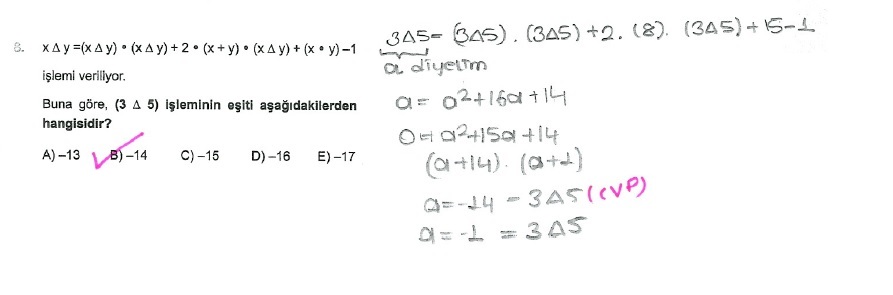 8. x Δ y =(x Δ y) • (x Δ y) + 2 • (x + y) • (x Δ y) + (x • y) –1
işlemi veriliyor.
Buna göre, (3 Δ 5) işleminin eşiti aşağıdakilerden
hangisidir?
A) –13 B) –14 C) –15 D) –16 E) –17
3Δ5= (3Δ5) . (3Δ5) +2. (8). (3Δ5) + 15-1
a diyelim
a= a²+16a+14
0=a²+15a+14
(a+14). (a+1)
a=-14 = 3Δ5 (CVP)
a= -1 = 3Δ5